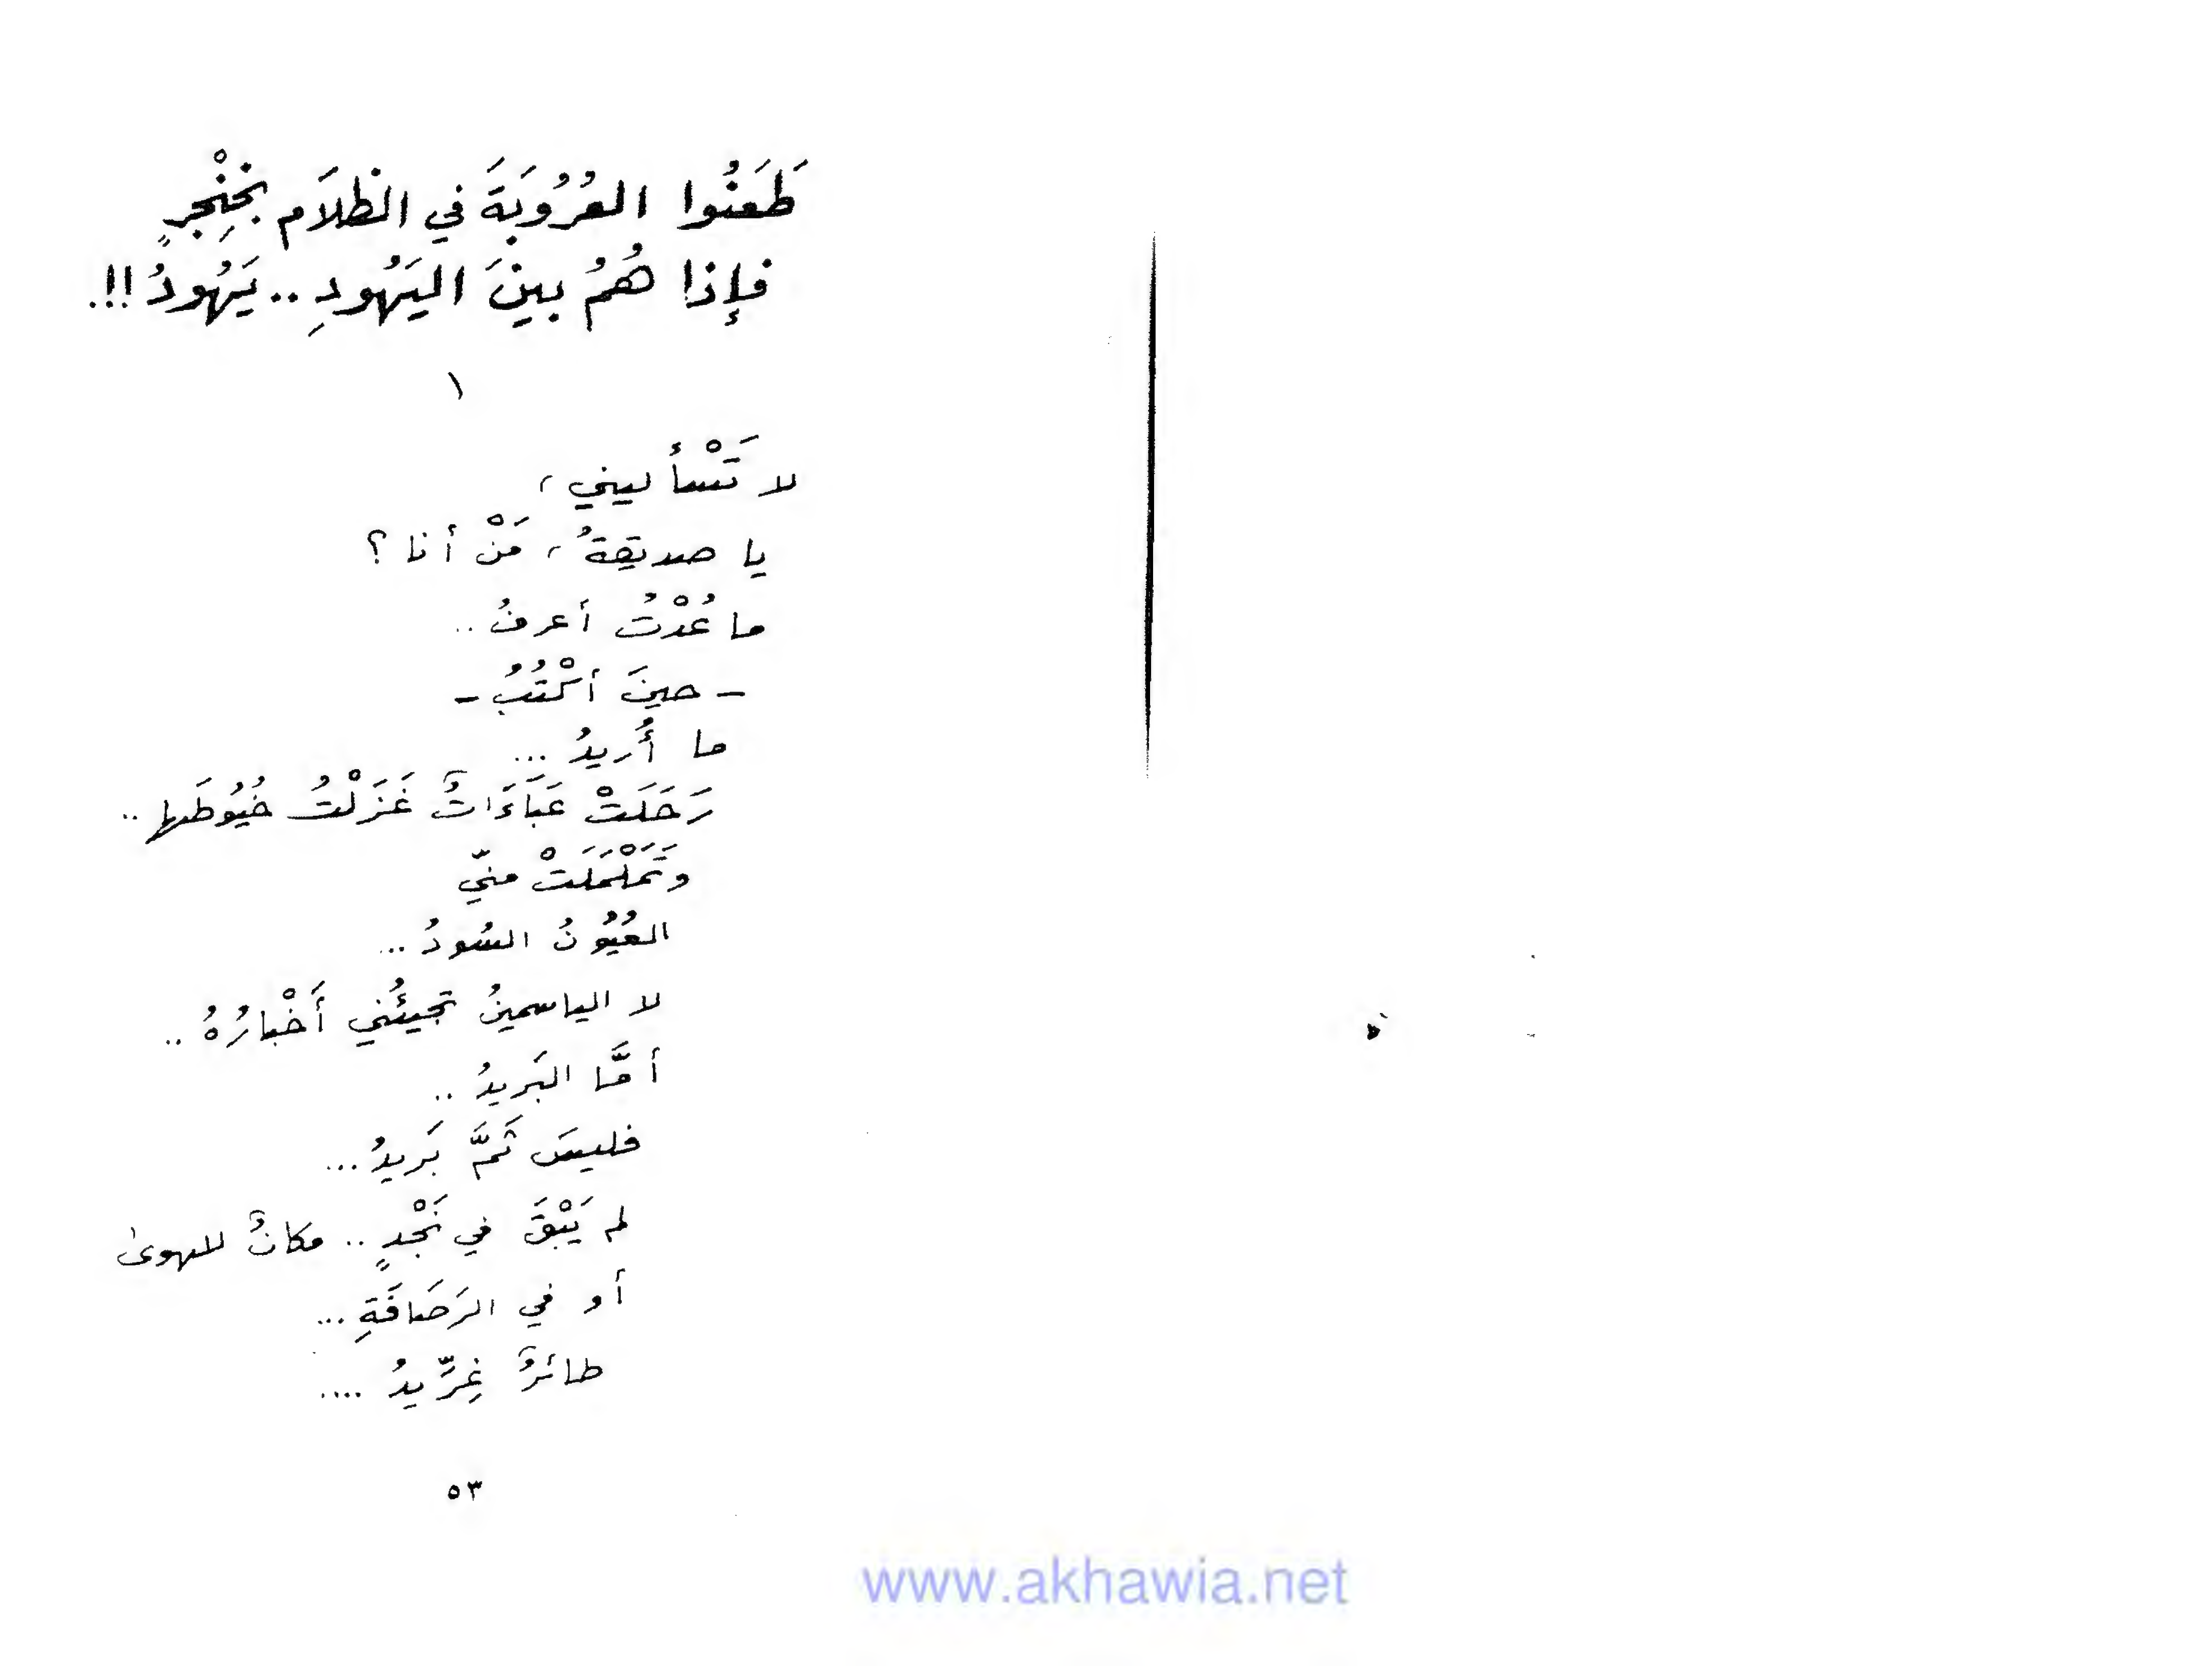 طَعَنُوا العُرُوبَةَ في الظلاَم بخَنِْجرٍ
فإذا هُمُ بينَ اليَهُودِ.. يَهُودُ!!.
١
لا تَسْأليني،
يا صديقةُ، مَنْ أنا؟
ما عُدْتُ أعرفُ..
- حينَ أكْتُبُ -
ما أُريدُ...
رَحَلَتْ عَبَاءَاتٌ غَزَلْتُ خُيُوطَها..
وتَمَلْمَلَتْ منّي
العُيُونُ السُودُ...
لا الياسمينُ تجيئُني أَخْبارُهُ..
أمَّا البَريدُ..
فليسَ ثَمَّ بَريدُ...
لم يَبْقَ في نَجْدٍ.. مكانٌ للهوى
أو في الرَصَافَةِ...
طائرٌ غِرِّيدُ....
٥٣
www.akhawia.net